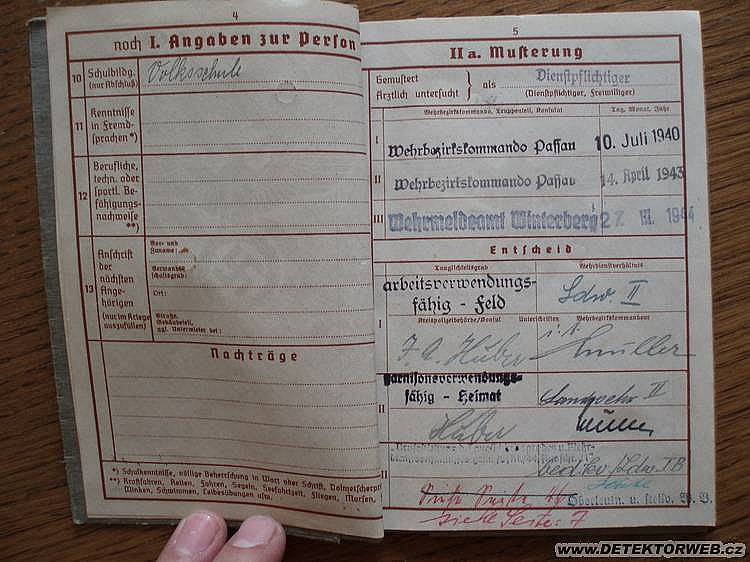 4
noch I. Angaben zur Person
10 Schulbildg. (nur Abschluß)
Volksschule
11 Kenntnisse in Fremdsprachen *)
12 Berufliche, techn. oder sportl. Befähigungsnachweise **)
13 Anschrift der nächsten Angehörigen (nur im Kriege auszufüllen)
Vor- und Zuname:
Verwandtschaftsgrad:
Ort:
Straße, Gebäudeteil, ggf. Untermieter bei:
Nachträge
*) Schulkenntnisse, völlige Beherrschung in Wort oder Schrift, Dolmetscherprü
**) Kraftfahren, Reiten, Fahren, Segeln, Seefahrtzeit, Fliegen, Morsen,
Winken, Schwimmen, Leibesübungen usw.
5
II a. Musterung
Gemustert
Ärztlich untersucht
als
Dienstpflichtiger
(Dienstpflichtiger, Freiwilliger)
Wehrbezirkskommando, Truppenteil, Konsulat
Tag, Monat, Jahr
I
Wehrbezirkskommando Passau
10. Juli 1940
II
Wehrbezirkskommando Passau
14. April 1943
III
Wehrmeldeamt Winterberg
1944
Entscheid
Tauglichkeitsgrad
Wehrdienstverhältnis
I
arbeitsverwendungs-
fähig - Feld
Ldw. II
Kreispolizeibehörde/Konsul
Unterschriften
Wehrbezirkskommandeur
Huber
II
garnisonsverwendungs-
fähig - Heimat
Landwehr II
Huber
siehe Seite: 7
www.DETEKTORWEB.cz